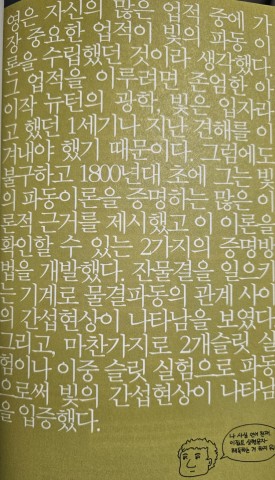 영은 자신의 많은 업적 중에 가
장 중요한 업적이 빛의 파동 이
론을 수립했던 것이라 생각했다.
그 업적을 이루려면 존엄한 아
이작 뉴턴의 광학, 빛은 입자라
고 했던 1세기나 지난 견해를 이
겨내야 했기 때문이다. 그럼에도
불구하고 1800년대 초에 그는 빛
의 파동이론을 증명하는 많은 이
론적 근거를 제시했고 이 이론을
확인할 수 있는 2가지의 증명방
법을 개발했다. 잔물결을 일으키
는 기계로 물결파동의 관계 사이
의 간섭현상이 나타남을 보였다.
그리고, 마찬가지로 2개슬릿 실
험이나 이중 슬릿 실험으로 파동
으로써 빛의 간섭현상이 나타남
을 입증했다.
나 사실 언어 천재,